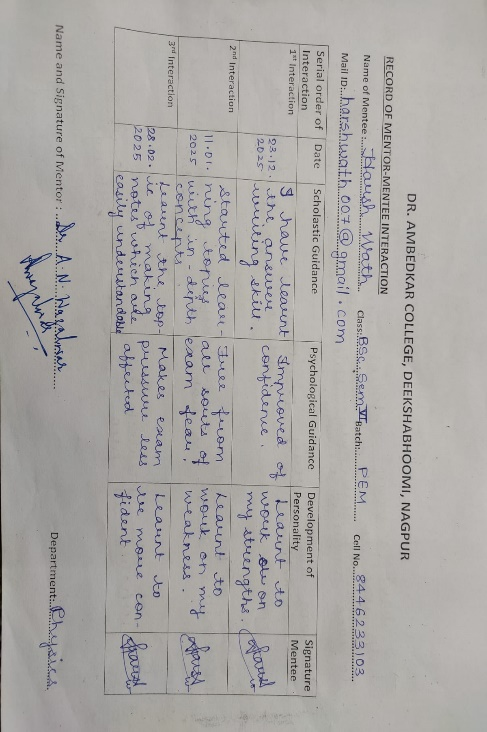 DR. AMBEDKAR COLLEGE, DEEKSHABHOOMI, NAGPUR
RECORD OF MENTOR-MENTEE INTERACTION
Name of Mentee :....Harsh Wath.... Class:.BSc.Sem VI Batch:......PEM...... Cell No....8446233103
Mail ID:..harshwath007@gmail.com
Serial order of Interaction Date Scholastic Guidance Psychological Guidance Development of Personality Signature Mentee
1st Interaction
23.12.
2025
I have learnt
the answer
writing skill.
Improved of
confidence.
Learnt to
work on
my strengths.
2nd Interaction
11.01.
2025
Started lear-
ning topics
with in-depth
concepts.
Free from
all sorts of
exam fear.
Learnt to
work on my
weakness.
3rd Interaction
28.02.
2025
Learnt the top-
ic of making
notes which are
easily understandable
Makes exam
pressure less
affected
Learnt to
be more con-
fident
Name and Signature of Mentor :..Dr. A. N.
Department:..Physics